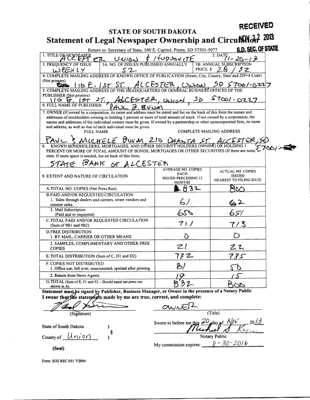 RECEIVED
STATE OF SOUTH DAKOTA
Statement of Legal Newspaper Ownership and Circulation
NOV 22 2013
Return to: Secretary of State, 500 E. Capitol, Pierre, SD 57501-5077
S.D. SEC. OF STATE
1. TITLE OF NEWSPAPER
ALCESTER UNION & HUDSONITE
2. DATE
11-20-13
3. FREQUENCY OF ISSUE
WEEKLY
3A. NO. OF ISSUES PUBLISHED ANNUALLY
52
3B. ANNUAL SUBSCRIPTION
PRICE $ 28 / 32
4. COMPLETE MAILING ADDRESS OF KNOWN OFFICE OF PUBLICATION (Street, City, County, State and ZIP+4 Code)
(Not printers)
110 E. 1st ST. ALCESTER, UNION SD 57001-0227
5. COMPLETE MAILING ADDRESS OF THE HEADQUARTERS OR GENERAL BUSINESS OFFICES OF THE
PUBLISHER (Not printers)
110 E. 1st ST. ALCESTER, UNION SD 57001-0227
6. FULL NAME OF PUBLISHER:
PAUL J. BUUM
7. OWNER (If owned by a corporation, its name and address must be stated and also on the back of this form the names and
addresses of stockholders owning or holding 1 percent or more of total amount of stock. If not owned by a corporation, the
names and addresses of the individual owners must be given. If owned by a partnership or other unincorporated firm, its name
and address, as well as that of each individual must be given.
FULL NAME
COMPLETE MAILING ADDRESS
PAUL & MICHELE BUUM 210 DAKOTA ST ALCESTER, SD
57001
8. KNOWN BONDHOLDERS, MORTGAGEES, AND OTHER SECURITY HOLDERS OWNING OR HOLDING 1
PERCENT OR MORE OF TOTAL AMOUNT OF BONDS, MORTGAGES OR OTHER SECURITIES (If there are none, so
state. If more space is needed, list on back of this form.
STATE BANK OF ALCESTER
9. EXTENT AND NATURE OF CIRCULATION
AVERAGE NO. COPIES
EACH
ISSUED PRECEDING 12
MONTHS
ACTUAL NO. COPIES
ISSUED
NEAREST TO FILING DATE
A. TOTAL NO. COPIES (Net Press Run)
832
800
B. PAID AND/OR REQUESTED CIRCULATION
1. Sales through dealers and carriers, street vendors and
counter sales.
61
62
2. Mail Subscription
(Paid and or requested)
650
651
C. TOTAL PAID AND/OR REQUESTED CIRCULATION
(Sum of 9B1 and 9B2)
711
713
D. FREE DISTRIBUTION
1. BY MAIL, CARRIER OR OTHER MEANS
0
0
2. SAMPLES, COMPLIMENTARY AND OTHER FREE
COPIES
21
22
E. TOTAL DISTRIBUTION (Sum of C, D1 and D2)
732
735
F. COPIES NOT DISTRIBUTED
1. Office use, left over, unaccounted, spoiled after printing
81
50
2. Return from News Agents
19
15
G. TOTAL (Sum of E, F1 and 2) - Should equal net press run
shown in A.
832
800
Statement must be signed by Publisher, Business Manager, or Owner in the presence of a Notary Public
I swear that the statements made by me are true, correct, and complete:
OWNER
(Signature)
(Title)
State of South Dakota )
§
County of Union )
Sworn to before me this 20 day of Nov 2013
Notary Public
(Seal)
My commission expires: 8-30-2016
Form: SOS REC 051 7/2004